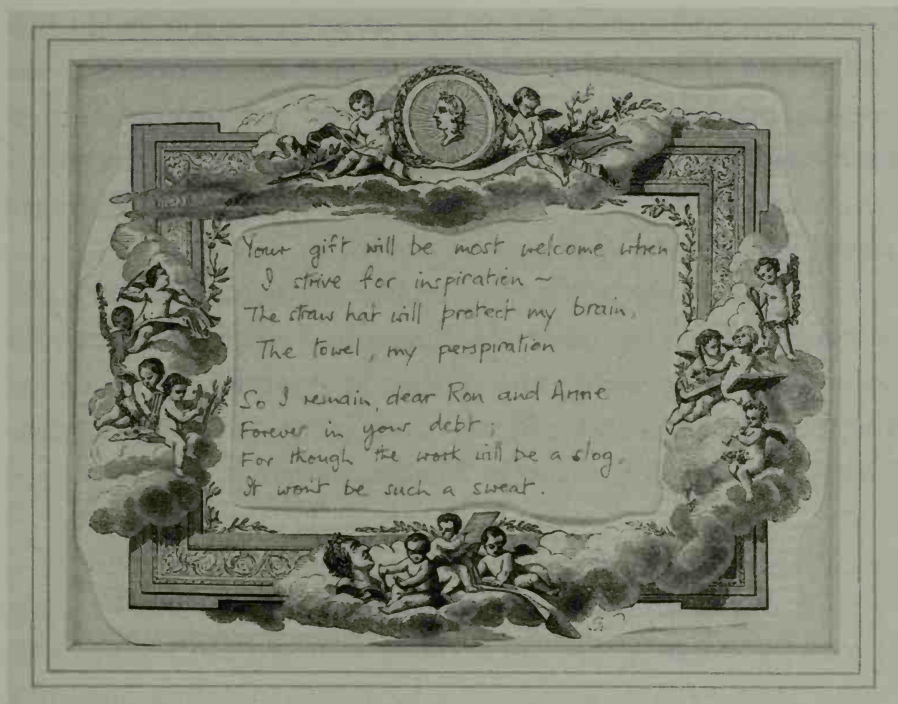 Your gift will be most welcome when
I strive for inspiration ~
The straw hat will protect my brain,
The towel, my perspiration
So I remain, dear Ron and Anne
Forever in your debt;
For though the work will be a slog,
It won't be such a sweat.